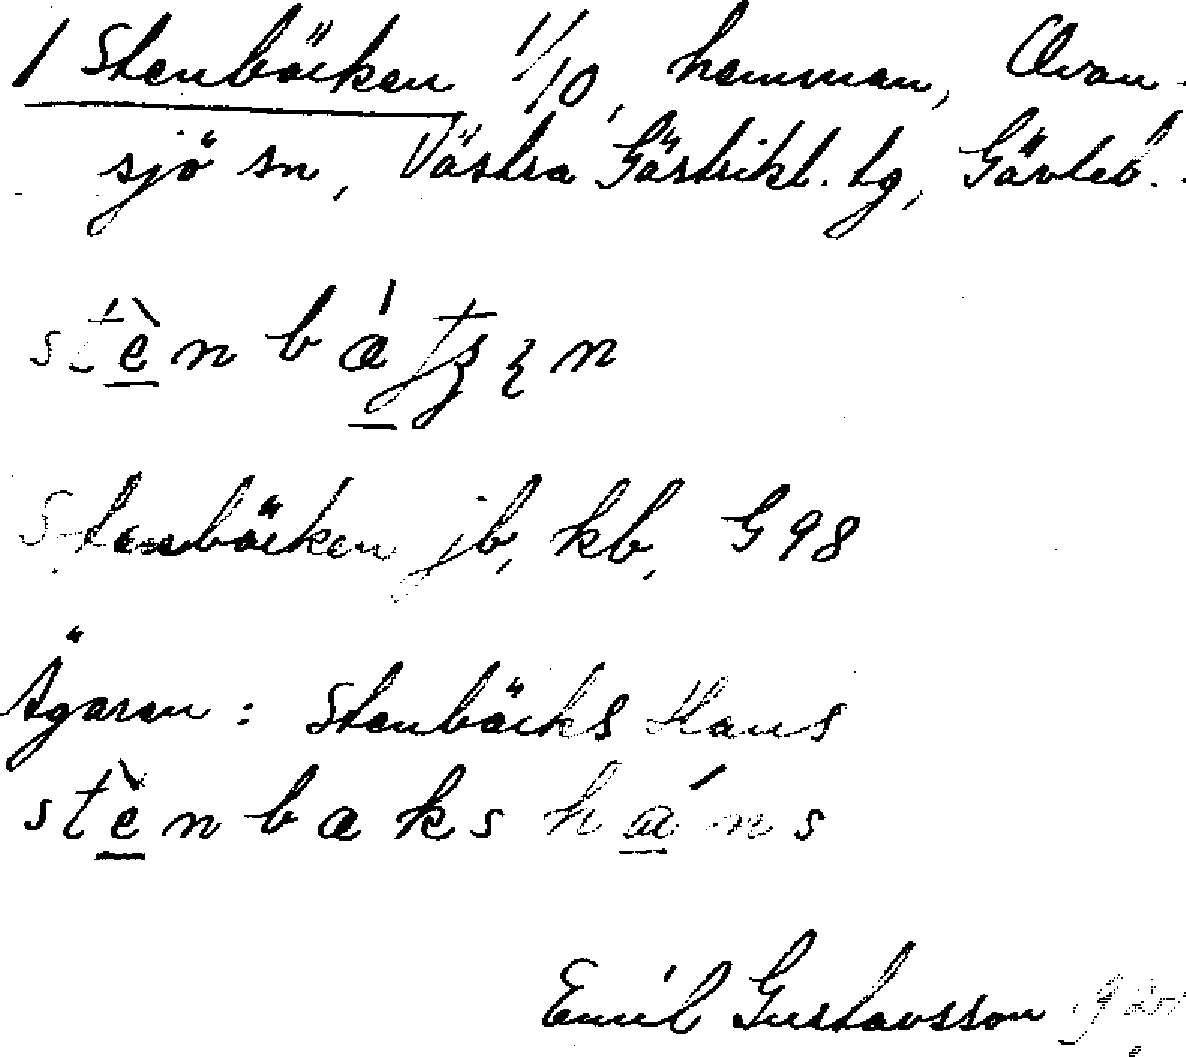 1 Stenbäcken 1/10, hemman, Ovan-
sjö sn, Västra Gästrikl. tg, Gävleb.
Stenbäcken jb, kb, G 98
Ägaren: Stenbäcks Hans
stènbaks háns
Emil Gustavsson